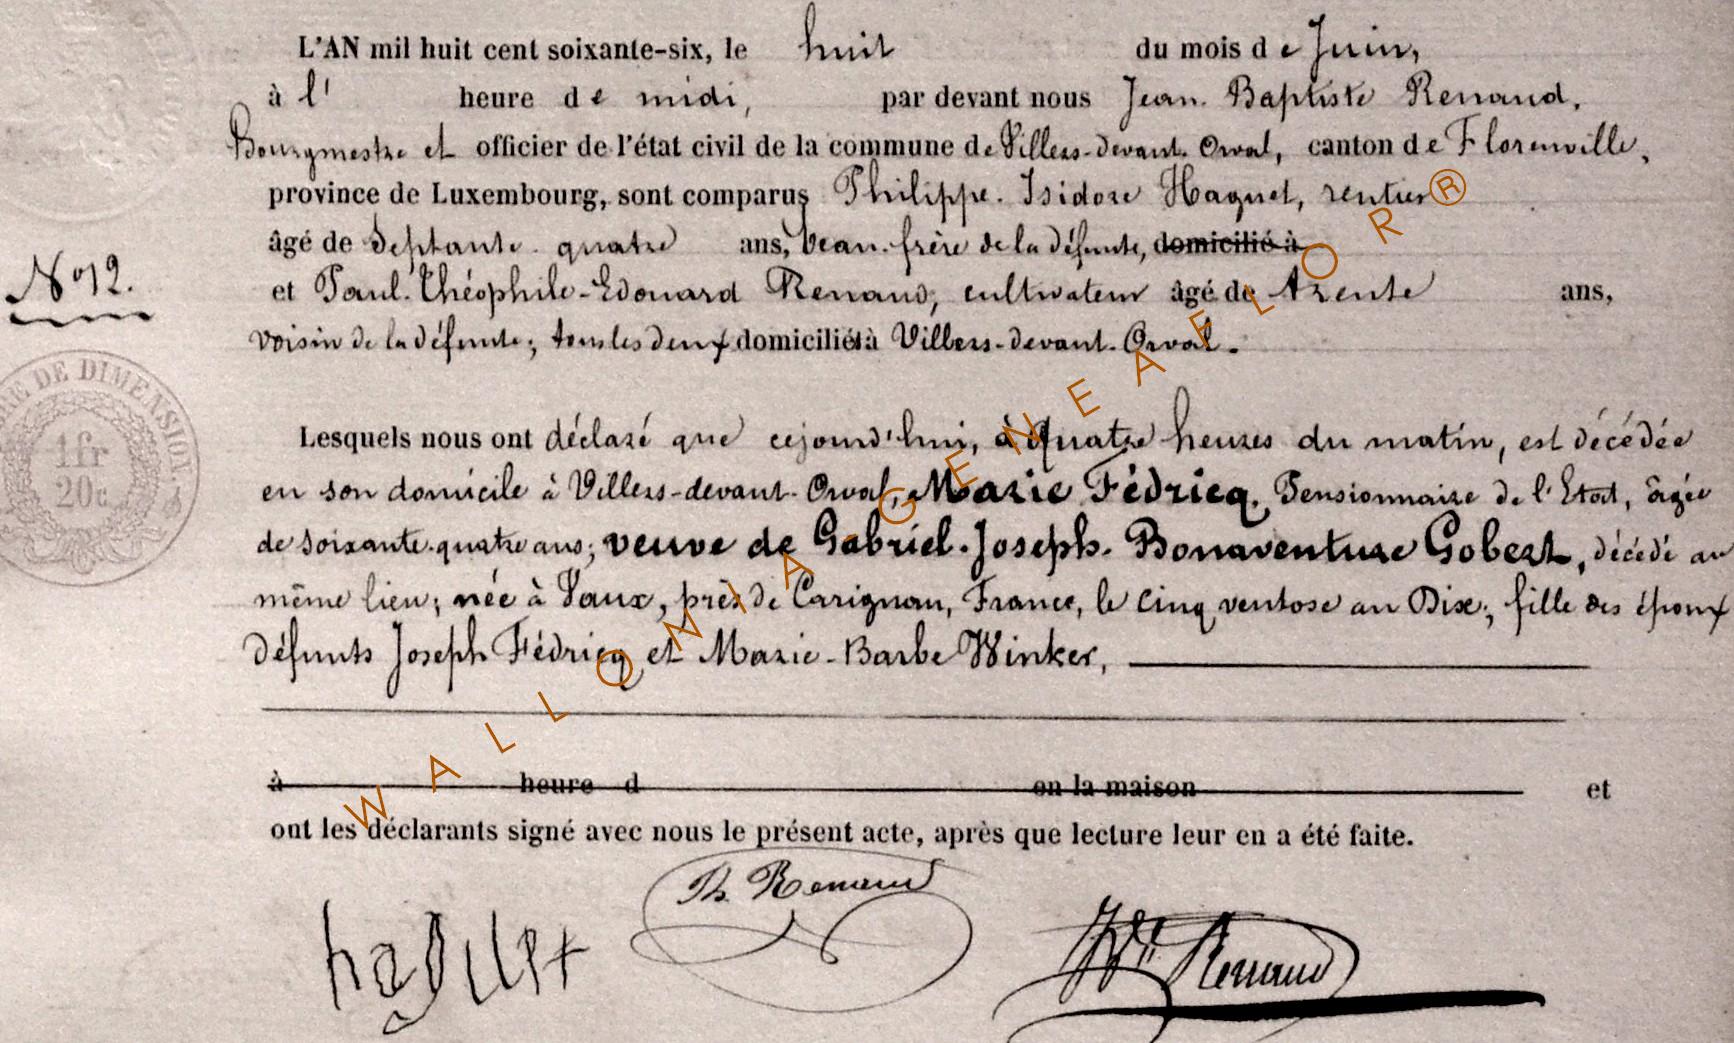 L'AN mil huit cent soixante-six, le huit du mois de Juin,
à l' heure de midi, par devant nous Jean-Baptiste Renaud,
Bourgmestre et officier de l'état civil de la commune de Villers-devant-Orval, canton de Florenville,
province de Luxembourg, sont comparus Philippe-Isidore Haguet, rentier
âgé de Septante-quatre ans, beau-frère de la défunte, domicilié à
N° 12.
et Paul-Théophile-Edouard Renaud, cultivateur âgé de trente ans,
voisin de la défunte; tous les deux domiciliés à Villers-devant-Orval.
DE DIMENSION.
1 fr
20c
Lesquels nous ont déclaré que cejourd'hui, à quatre heures du matin, est décédée
en son domicile à Villers-devant-Orval, Marie Fédricq, Pensionnaire de l'Etat, âgée
de soixante-quatre ans; veuve de Gabriel-Joseph-Bonaventure Gobert, décédé au
même lieu; née à Vaux, près de Carignan, France, le cinq ventose an Dix; fille des époux
défunts Joseph Fédricq et Marie-Barbe Winker,
à heure d en la maison et
ont les déclarants signé avec nous le présent acte, après que lecture leur en a été faite.
Th. Renaud
haguet
Renaud
WALLONIA-GENEAFLOR®